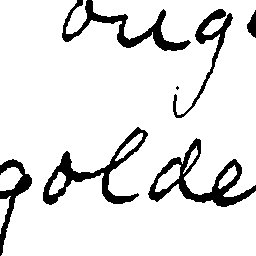 oug
golde